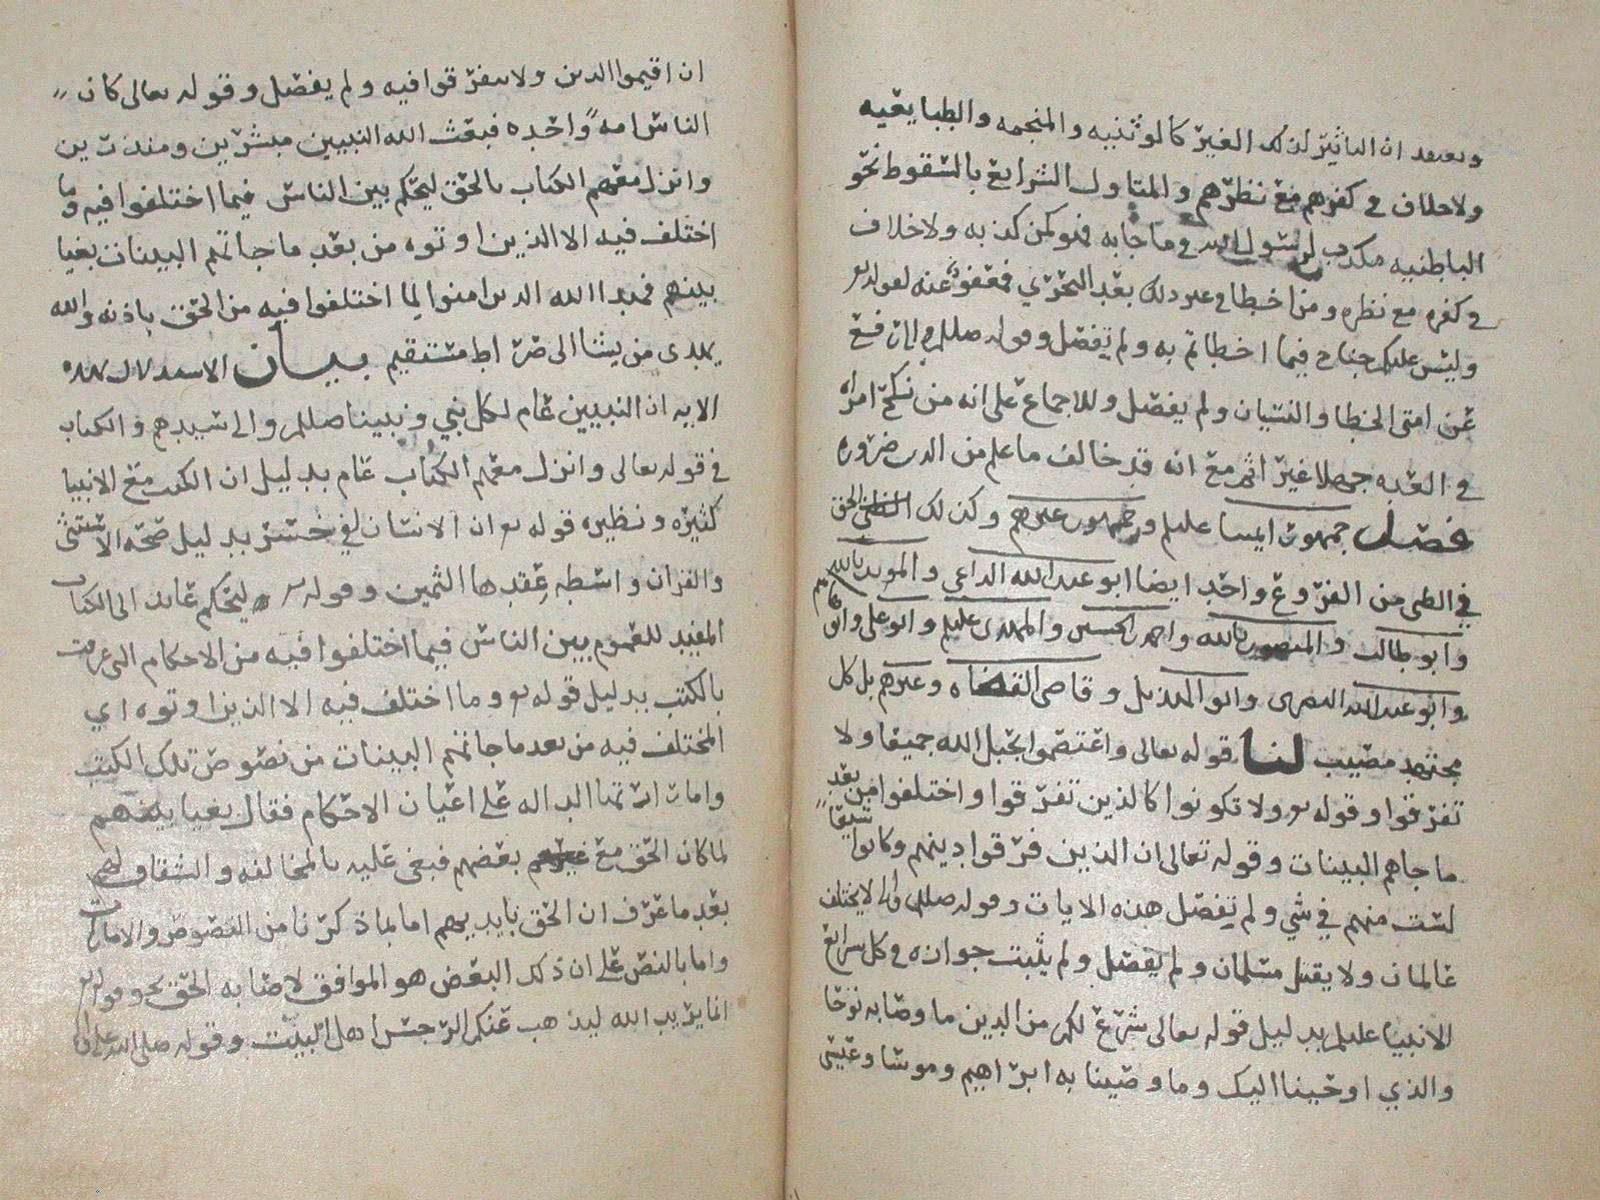 وبعبد ان التاثير لذلك الغير كالوثنيه والمنجمه والطبايعيه
ولا خلاف في كفرهم مع نظرهم والمتاول الشرايع بالسقوط نحو
الباطنيه مكذب لرسول الله في ماجابه فهو كمن كذبه ولا خلاف
في كفره مع نظره ومن اخطا في غير ذلك بعد التحري فمعفو عنه لقوله تع
وليس عليكم جناح فيما اخطاتم به ولم يفصل وقوله صللم رفع
عن امتي الخطا والنسيان ولم يفصل وللاجماع على انه من نكح امراه
في العده جهلا غير اثم مع انه قد خالف ما علم من الدين ضروره
فصل جمهور ايمتنا عليلم وجمهور غيرهم وكذلك الحق
في الظني من الفروع واحد ايضا ابو عبد الله الداعي والمويد بالله
وابو طالب والمنصور بالله واحمد الحسين والمهدي عليلم وابو علي وابو هاشم
وابو عبد الله البصري وابو الهذيل وقاضي القضاه وغيرهم بل كل
مجتهد مصيب لنا قوله تعالى واعتصموا بحبل الله جميعا ولا
تفرقوا وقوله تع ولا تكونوا كالذين تفرقوا واختلفوا من بعد
ما جاهم البينات وقوله تعالى ان الذين فرقوا دينهم وكانوا شيعا
لست منهم في شي ولم تفصل هذه الايات وقوله صللم لا يختلف
عالمان ولا يقتتل مسلمان ولم يفصل ولم يثبت جوازه في كل شرايع
الانبيا عليلم بدليل قوله تعالى شرع لكم من الدين ما وصا به نوحا
والذي اوحينا اليك وما وصينا به ابراهيم وموسا وعيسى
ان اقيموا الدين ولا تتفرقوا فيه ولم يفصل وقوله تعالى كان
الناس امة واحده فبعث الله النبيين مبشرين ومنذرين
وانزل معهم الكتاب بالحق ليحكم بين الناس فيما اختلفوا فيه وما
اختلف فيه الا الذين اوتوه من بعد ما جاتهم البينات بغيا
بينهم فهدا الله الذين امنوا لما اختلفوا فيه من الحق باذنه والله
يهدي من يشا الى صراط مستقيم بيان الاستدلال بهذه
الايه ان النبيين عام لكل نبي ونبينا صللم والى سيدهم والكتاب
في قوله تعالى وانزل معهم الكتاب عام بدليل ان الكتب مع الانبيا
كثيره ونظيره قوله تع ان الانسان لفي خسر بدليل صحة الاستثنى
والقران واسطه عقدها الثمين وقوله تع ليحكم عايد الى الكتاب
المفيد للعموم بين الناس فيما اختلفوا فيه من الاحكام التي عرفت
بالكتب بدليل قوله تع وما اختلف فيه الا الذين اوتوه اي
المختلف فيه من بعد ما جاتهم البينات من نصوص تلك الكتب
وامارتها الداله على اعيان الاحكام فقال بغيا بينهم
لما كان الحق مع بعضهم فبغي عليه بالمخالفه والشقاق لهم
بعد ما عرف ان الحق بايديهم اما بما ذكرنا من النصوص والامارات
واما بالنص على ان ذلك البعض هو الموافق لاصابه الحق نحو قوله تع
انما يريد الله ليذهب عنكم الرجس اهل البيت وقوله صلى الله عليه